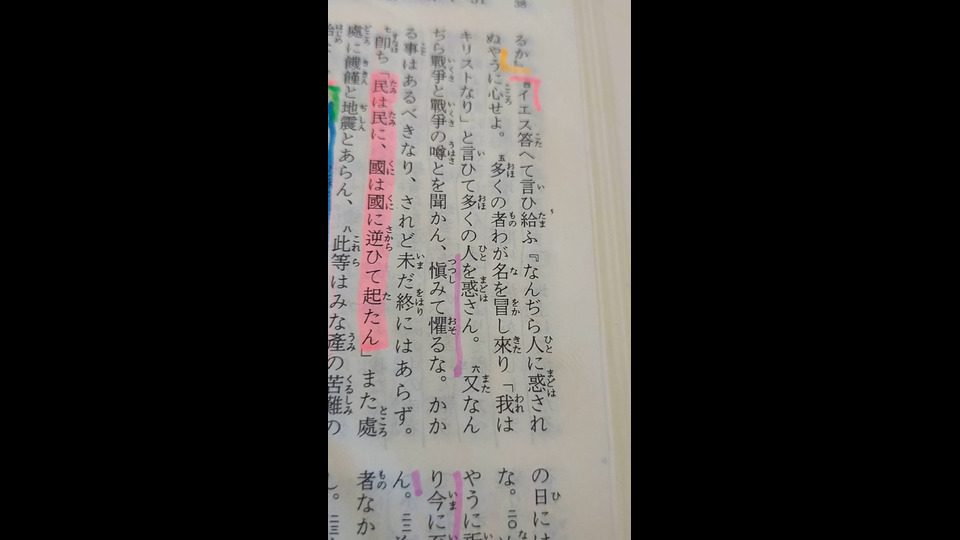 るか』四イエス答へて言ひ給ふ『なんぢら人に惑され
ぬやうに心せよ。五多くの者わが名を冒し來り「我は
キリストなり」と言ひて多くの人を惑さん。六又なん
ぢら戰爭と戰爭の噂とを聞かん、愼みて懼るな。かか
る事はあるべきなり、されど未だ終にはあらず。
七即ち「民は民に、國は國に逆ひて起たん」また處
處に饑饉と地震とあらん、八此等はみな產の苦難の
の日には
な。二〇
やうに
り今に
ん。二二
者なか